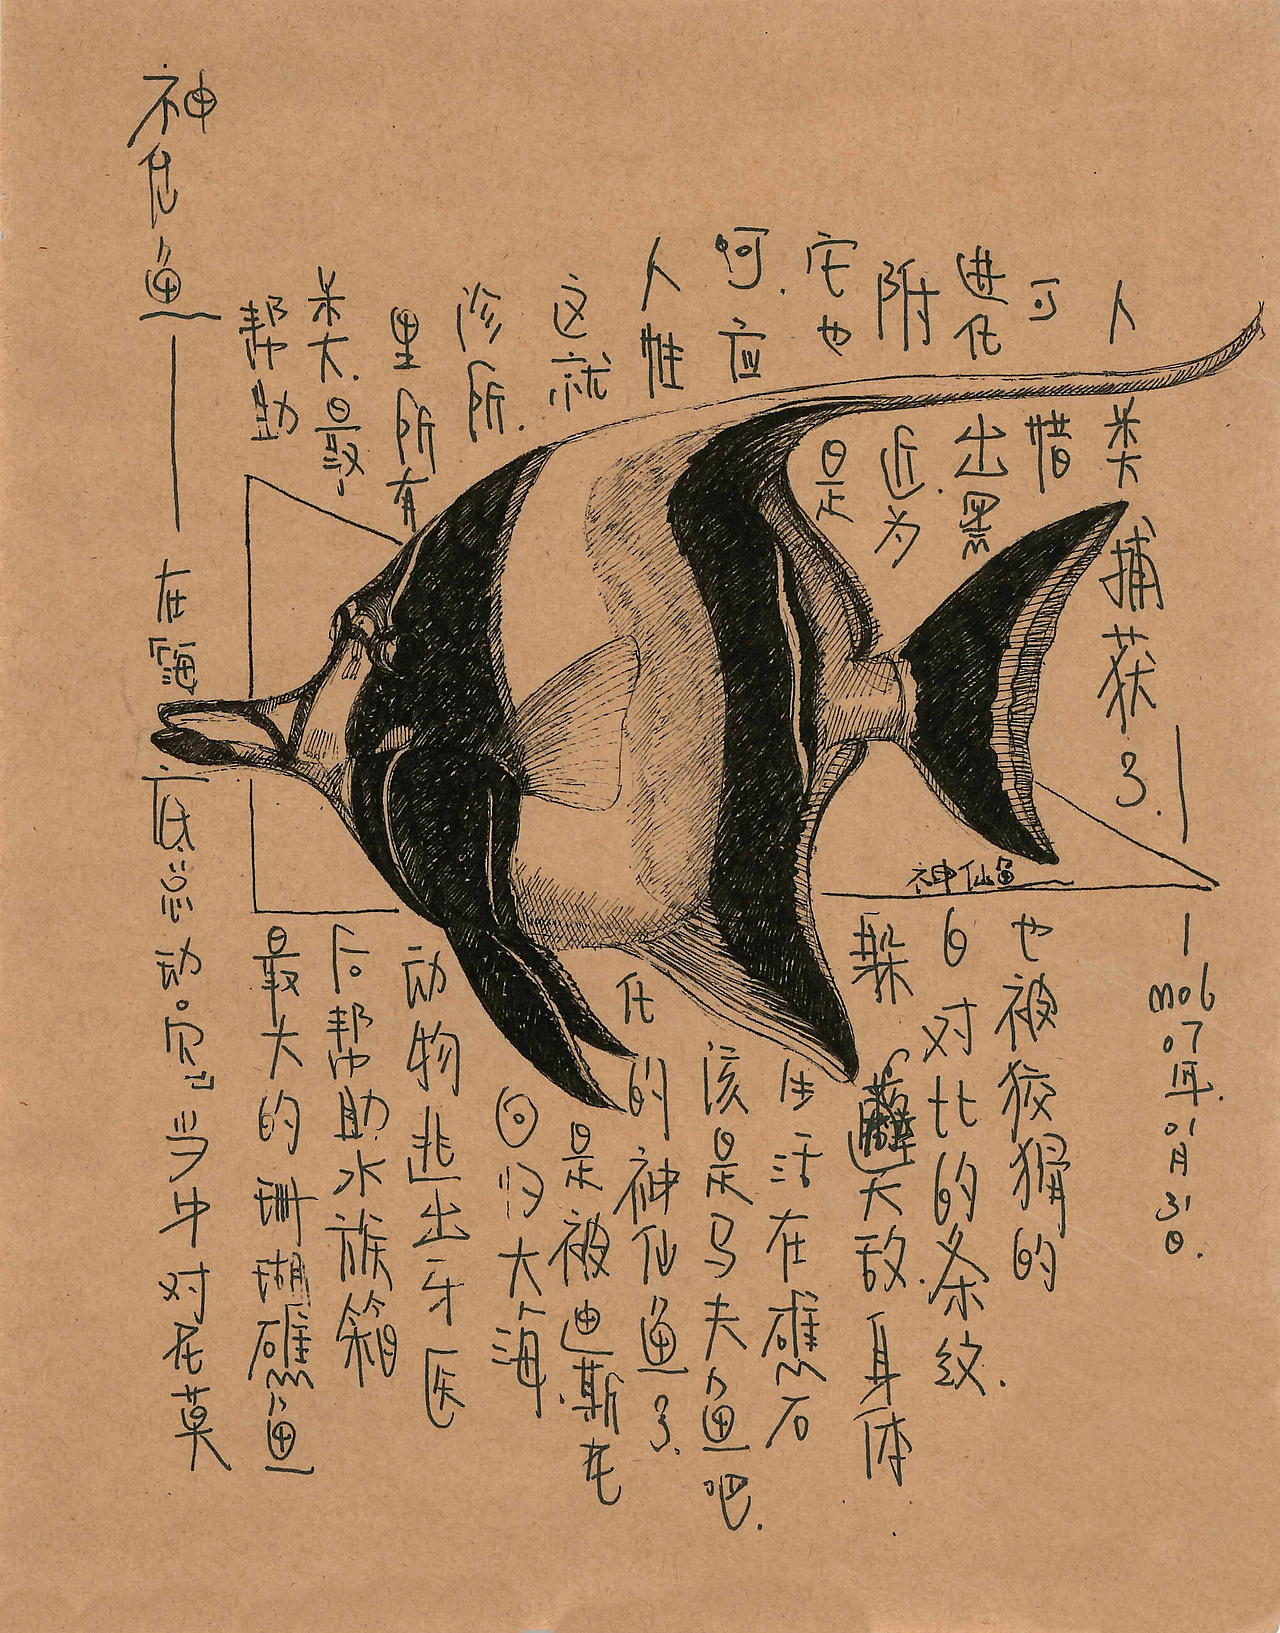 神仙鱼——在海底总动员当中对尼莫
帮助最大的珊瑚礁鱼
类.最后帮助水族箱
里所有动物逃出牙医
诊所.回归大海.
这就是被迪斯尼
人性化的神仙鱼了.
呵.应该是马夫鱼吧.
它也是生活在礁石
附近.为躲避天敌.身体
进化出黑白对比的条纹.
可惜也被狡猾的
人类捕获了.
mob 07年.01月31日.
神仙鱼